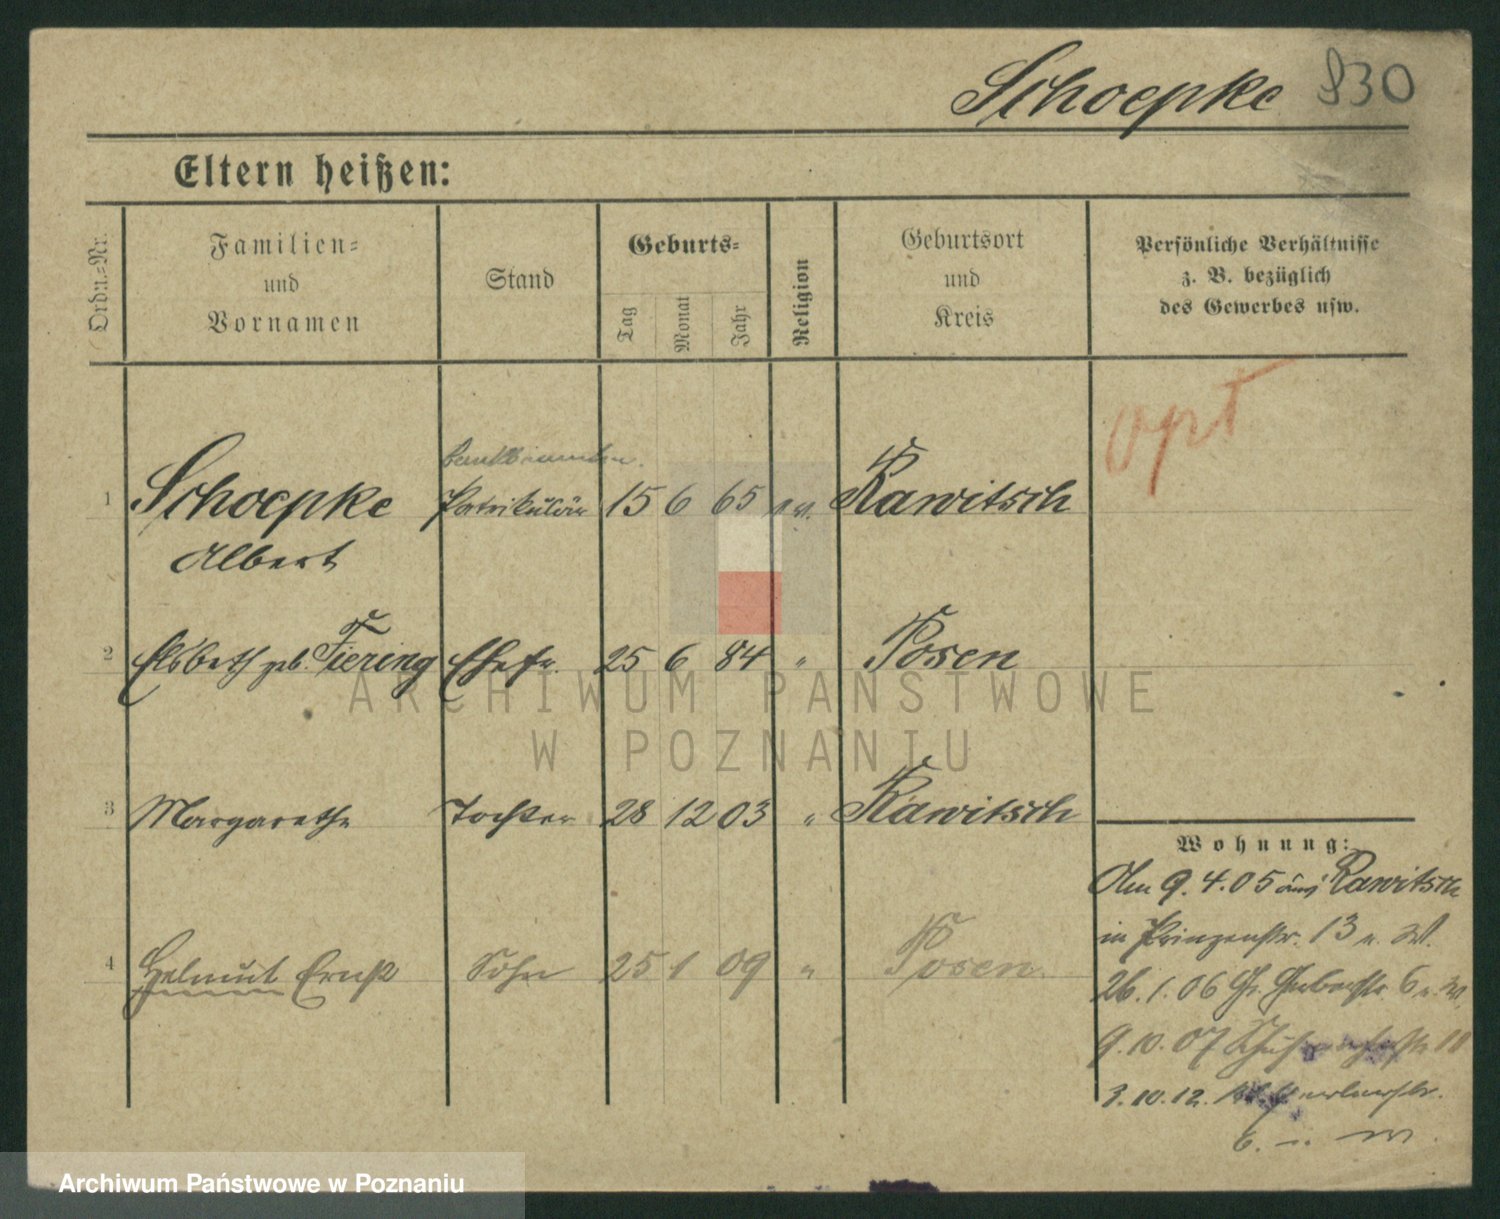 Schoepke 830
Eltern heißen:
Ordn.=Nr.
Familien=
und
Vornamen
Stand
Geburts=
Tag
Monat
Jahr
Religion
Geburtsort
und
Kreis
Persönliche Verhältnisse
z. B. bezüglich
des Gewerbes usw.
opt
1 Schoepke 15 6 65 ev. Rawitsch
Albert
2 Elsbeth geb. Tiering Ehefr. 25 6 84 " Posen
3 Margarethe Tochter 28 12 03 " Rawitsch
4 Helmut Ernst Sohn 25 1 09 " Posen
Wohnung:
Am 9.4.05 aus Rawitsch
in Prinzenstr. 13 n. W.
26.1.06 Gr. 6 n. W.
9.10.07
3.10.12.
6.
ARCHIWUM PAŃSTWOWE
W POZNANIU
Archiwum Państwowe w Poznaniu